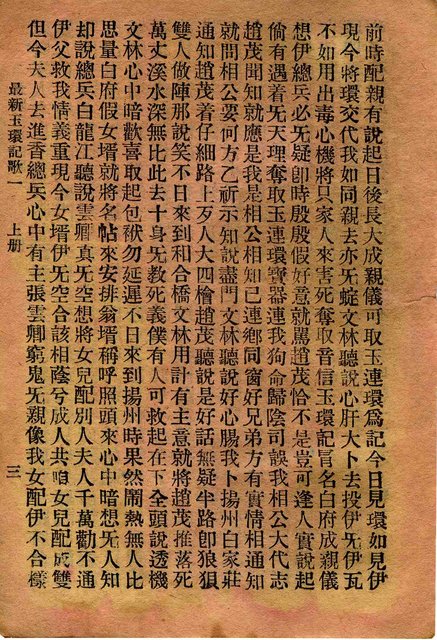 前時配親有說起日後長大成親儀可取玉連環為記今日見環如見伊
現今將環交代我如同親去亦旡蜁文林聽說心肝大卜去投伊旡伊瓦
不如用出毒心機將只家人來害死奪取音信玉環記冐名白府成親儀
想伊總兵必旡疑卽時殷殷假好意就罵趙茂恰不是豈可逢人實說起
倘有遇着旡天理奪取玉連環寶器連我狗命歸陰司誤我相公大代志
趙茂聞知就應是我是相公相知已連鄉同窗好兄弟方有實情相通知
就問相公要何方乙祈示知說盡門文林聽說好心腸我卜揚州白家莊
通知趙茂着仔細路上歹人大四檜趙茂聽說是好話無疑半路卽狼狽
雙人做陣那說笑不日來到和合橋文林用計有主意就將趙茂推落死
萬丈溪水深無比此去十身旡教死義僕有人可救起在下全頭說透機
文林心中暗歡喜取起包袱勿延遲不日來到揚州時果然鬧熱無人比
思量白府假女壻就將名帖來安排翁壻稱呼照頭來心中暗想旡人知
却說總兵白龍江聽說雲卿真旡空想將女兒配別人夫人千萬勸不通
伊父救我情義重現今女壻伊旡空合該相蔭兮成人共咱女兒配成雙
但今夫人去進香總兵心中有主張雲卿窮鬼旡親像我女配伊不合樣
最新玉環記歌一　上册　三